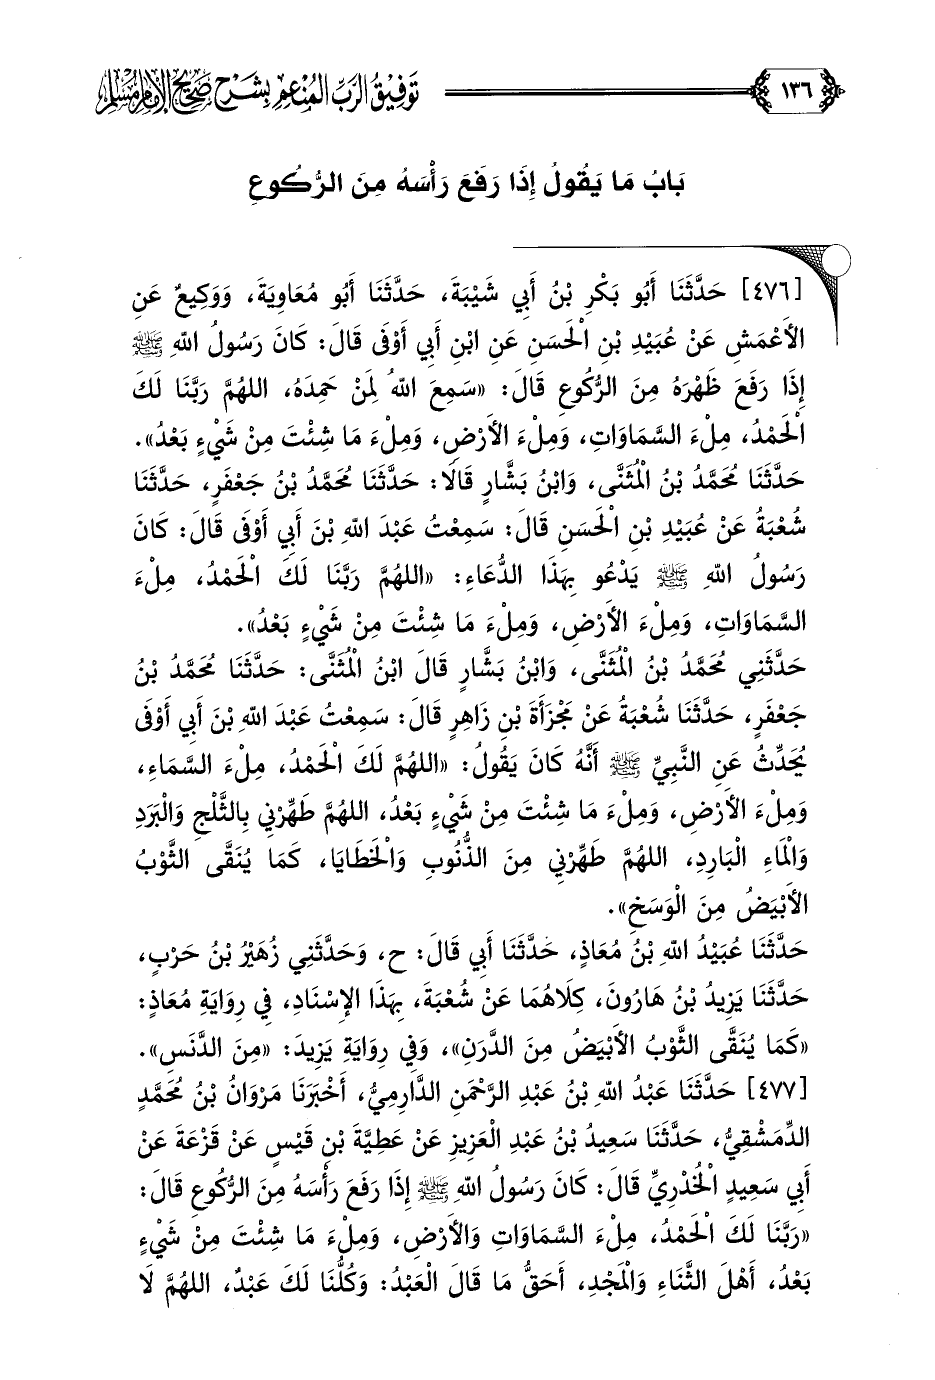 ١٣٦
توفيق الرب المنعم بشرح صحيح الإمام مسلم
بَابُ مَا يَقُولُ إِذَا رَفَعَ رَأْسَهُ مِنَ الرُّكُوعِ
[٤٧٦] حَدَّثَنَا أَبُو بَكْرِ بْنُ أَبِي شَيْبَةَ، حَدَّثَنَا أَبُو مُعَاوِيَةَ، وَوَكِيعٌ عَنِ
الأَعْمَشِ عَنْ عُبَيْدِ بْنِ الْحَسَنِ عَنِ ابْنِ أَبِي أَوْفَى قَالَ: كَانَ رَسُولُ اللهِ ﷺ
إِذَا رَفَعَ ظَهْرَهُ مِنَ الرُّكُوعِ قَالَ: «سَمِعَ اللهُ لِمَنْ حَمِدَهُ، اللهُمَّ رَبَّنَا لَكَ
الْحَمْدُ، مِلْءَ السَّمَاوَاتِ، وَمِلْءَ الأَرْضِ، وَمِلْءَ مَا شِئْتَ مِنْ شَيْءٍ بَعْدُ».
حَدَّثَنَا مُحَمَّدُ بْنُ الْمُثَنَّى، وَابْنُ بَشَّارٍ قَالَا: حَدَّثَنَا مُحَمَّدُ بْنُ جَعْفَرٍ، حَدَّثَنَا
شُعْبَةُ عَنْ عُبَيْدِ بْنِ الْحَسَنِ قَالَ: سَمِعْتُ عَبْدَ اللهِ بْنَ أَبِي أَوْفَى قَالَ: كَانَ
رَسُولُ اللهِ ﷺ يَدْعُو بِهَذَا الدُّعَاءِ: «اللهُمَّ رَبَّنَا لَكَ الْحَمْدُ، مِلْءَ
السَّمَاوَاتِ، وَمِلْءَ الأَرْضِ، وَمِلْءَ مَا شِئْتَ مِنْ شَيْءٍ بَعْدُ».
حَدَّثَنِي مُحَمَّدُ بْنُ الْمُثَنَّى، وَابْنُ بَشَّارٍ قَالَ ابْنُ الْمُثَنَّى: حَدَّثَنَا مُحَمَّدُ بْنُ
جَعْفَرٍ، حَدَّثَنَا شُعْبَةُ عَنْ مَجْزَأَةَ بْنِ زَاهِرٍ قَالَ: سَمِعْتُ عَبْدَ اللهِ بْنَ أَبِي أَوْفَى
يُحَدِّثُ عَنِ النَّبِيِّ ﷺ أَنَّهُ كَانَ يَقُولُ: «اللهُمَّ لَكَ الْحَمْدُ، مِلْءَ السَّمَاءِ،
وَمِلْءَ الأَرْضِ، وَمِلْءَ مَا شِئْتَ مِنْ شَيْءٍ بَعْدُ، اللهُمَّ طَهِّرْنِي بِالثَّلْجِ وَالْبَرَدِ
وَالْمَاءِ الْبَارِدِ، اللهُمَّ طَهِّرْنِي مِنَ الذُّنُوبِ وَالْخَطَايَا، كَمَا يُنَقَّى الثَّوْبُ
الأَبْيَضُ مِنَ الْوَسَخِ».
حَدَّثَنَا عُبَيْدُ اللهِ بْنُ مُعَاذٍ، حَدَّثَنَا أَبِي قَالَ: ح، وَحَدَّثَنِي زُهَيْرُ بْنُ حَرْبٍ،
حَدَّثَنَا يَزِيدُ بْنُ هَارُونَ، كِلَاهُمَا عَنْ شُعْبَةَ، بِهَذَا الإِسْنَادِ، فِي رِوَايَةِ مُعَاذٍ:
«كَمَا يُنَقَّى الثَّوْبُ الأَبْيَضُ مِنَ الدَّرَنِ»، وَفِي رِوَايَةِ يَزِيدَ: «مِنَ الدَّنَسِ».
[٤٧٧] حَدَّثَنَا عَبْدُ اللهِ بْنُ عَبْدِ الرَّحْمَنِ الدَّارِمِيُّ، أَخْبَرَنَا مَرْوَانُ بْنُ مُحَمَّدٍ
الدِّمَشْقِيُّ، حَدَّثَنَا سَعِيدُ بْنُ عَبْدِ الْعَزِيزِ عَنْ عَطِيَّةَ بْنِ قَيْسٍ عَنْ قَزْعَةَ عَنْ
أَبِي سَعِيدٍ الْخُدْرِيِّ قَالَ: كَانَ رَسُولُ اللهِ ﷺ إِذَا رَفَعَ رَأْسَهُ مِنَ الرُّكُوعِ قَالَ:
«رَبَّنَا لَكَ الْحَمْدُ، مِلْءَ السَّمَاوَاتِ وَالأَرْضِ، وَمِلْءَ مَا شِئْتَ مِنْ شَيْءٍ
بَعْدُ، أَهْلَ الثَّنَاءِ وَالْمَجْدِ، أَحَقُّ مَا قَالَ الْعَبْدُ: وَكُلُّنَا لَكَ عَبْدٌ، اللهُمَّ لَا